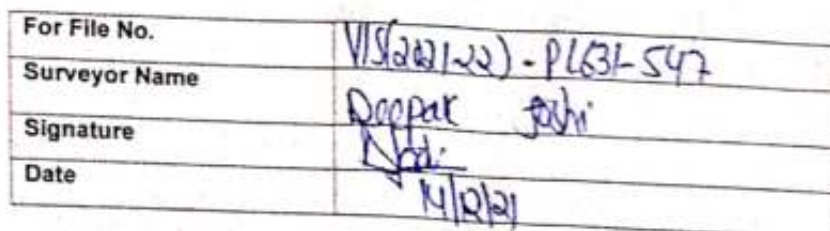 For File No. VIS(2021-22)-PL631-547
Surveyor Name Deepak Joshi
Signature
Date 14/12/21